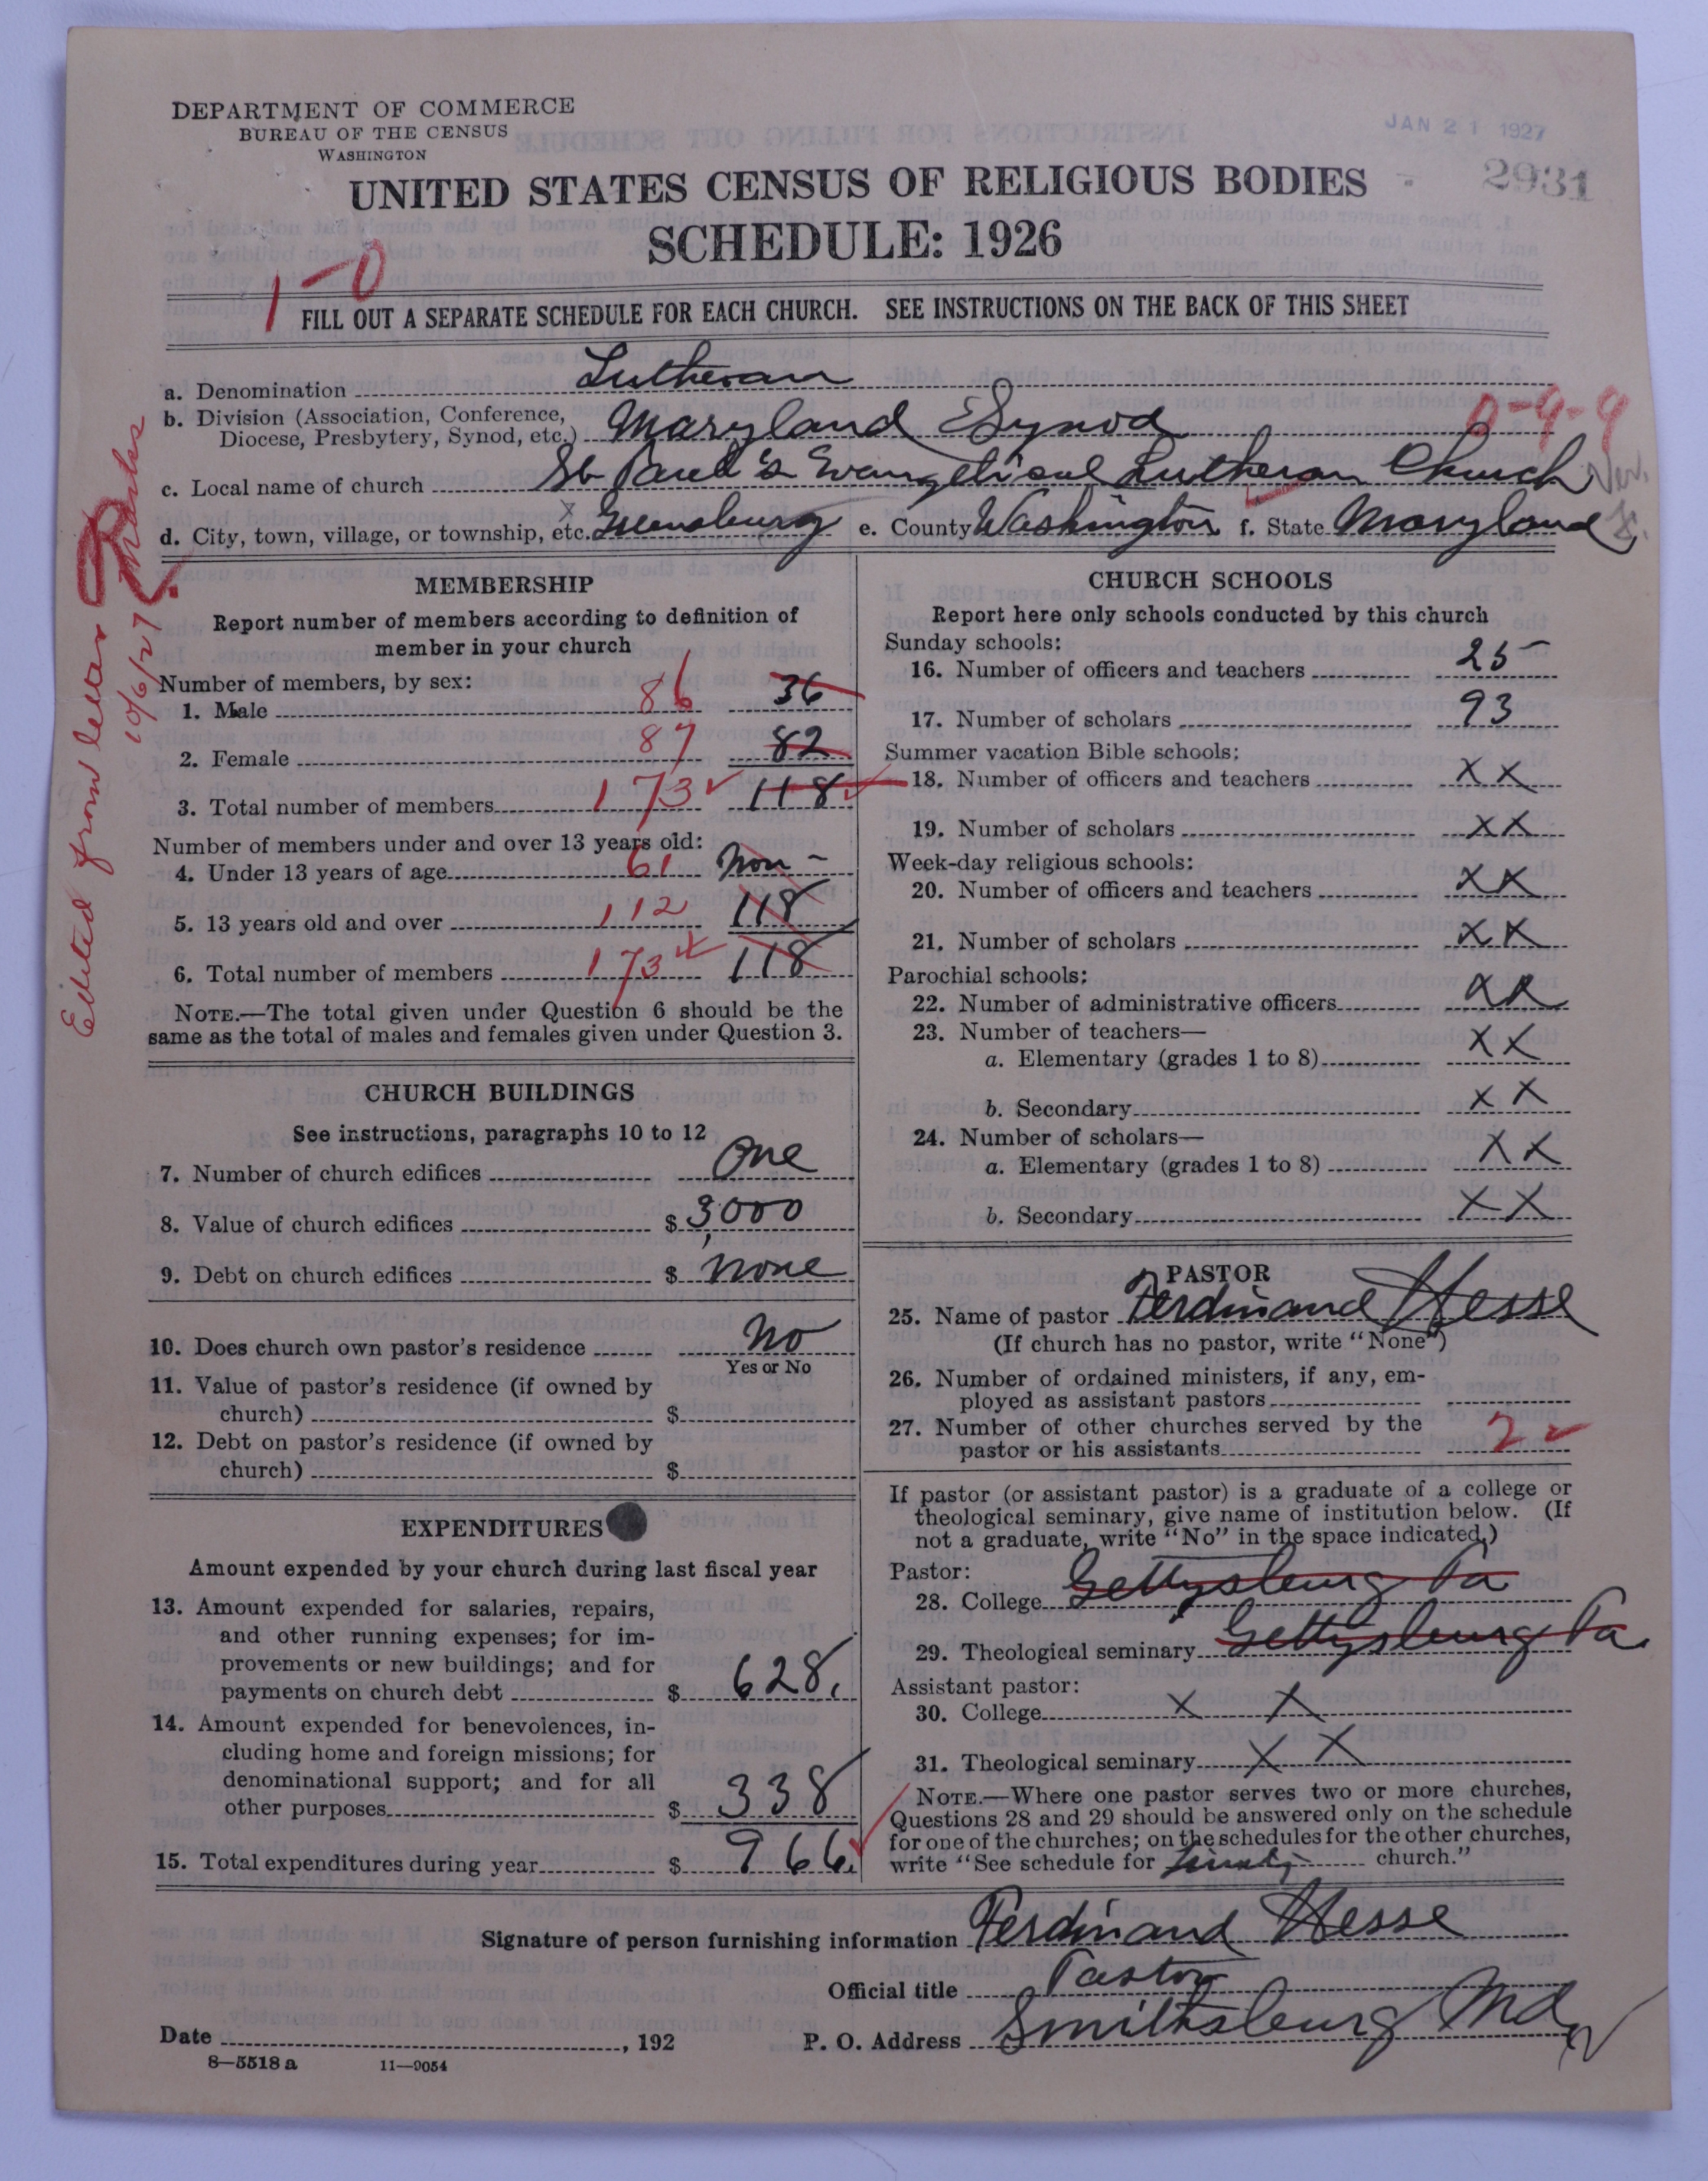 DEPARTMENT OF COMMERCE
BUREAU OF THE CENSUS
WASHINGTON
JAN 21 1927
2931
UNITED STATES CENSUS OF RELIGIOUS BODIES
SCHEDULE: 1926
1-0
FILL OUT A SEPARATE SCHEDULE FOR EACH CHURCH. SEE INSTRUCTIONS ON THE BACK OF THIS SHEET
a. Denomination Lutheran
b. Division (Association, Conference, Diocese, Presbytery, Synod, etc.) Maryland Synod 0-9-9
c. Local name of church St Paul's Evangelical Lutheran Church
d. City, town, village, or township, etc. Greensburg e. County Washington f. State Maryland
Edited from letter
10/6/27
MEMBERSHIP
Report number of members according to definition of
member in your church
Number of members, by sex:
1. Male 86 36
2. Female 87 82
3. Total number of members 173 118
Number of members under and over 13 years old:
4. Under 13 years of age 61 non -
5. 13 years old and over 112 118
6. Total number of members 173 118
NOTE.—The total given under Question 6 should be the
same as the total of males and females given under Question 3.
CHURCH BUILDINGS
See instructions, paragraphs 10 to 12
7. Number of church edifices One
8. Value of church edifices $ 3,000
9. Debt on church edifices $ none
10. Does church own pastor's residence No
Yes or No
11. Value of pastor's residence (if owned by
church) $
12. Debt on pastor's residence (if owned by
church) $
EXPENDITURES
Amount expended by your church during last fiscal year
13. Amount expended for salaries, repairs,
and other running expenses; for im-
provements or new buildings; and for
payments on church debt $ 628.
14. Amount expended for benevolences, in-
cluding home and foreign missions; for
denominational support; and for all
other purposes $ 338
15. Total expenditures during year $ 966.
CHURCH SCHOOLS
Report here only schools conducted by this church
Sunday schools:
16. Number of officers and teachers 25
17. Number of scholars 93
Summer vacation Bible schools:
18. Number of officers and teachers X X
19. Number of scholars X X
Week-day religious schools:
20. Number of officers and teachers X X
21. Number of scholars X X
Parochial schools:
22. Number of administrative officers X X
23. Number of teachers—
a. Elementary (grades 1 to 8) X X
b. Secondary X X
24. Number of scholars—
a. Elementary (grades 1 to 8) X X
b. Secondary X X
PASTOR
25. Name of pastor Ferdinand Hesse
(If church has no pastor, write "None")
26. Number of ordained ministers, if any, em-
ployed as assistant pastors
27. Number of other churches served by the
pastor or his assistants 2
If pastor (or assistant pastor) is a graduate of a college or
theological seminary, give name of institution below. (If
not a graduate, write "No" in the space indicated.)
Pastor:
28. College Gettysburg Pa
29. Theological seminary Gettysburg Pa.
Assistant pastor:
30. College X X
31. Theological seminary X X
NOTE.—Where one pastor serves two or more churches,
Questions 28 and 29 should be answered only on the schedule
for one of the churches; on the schedules for the other churches,
write "See schedule for Trinity church."
Signature of person furnishing information Ferdinand Hesse
Official title Pastor
Date , 192 P. O. Address Smithsburg Md
8—5518 a 11—9054